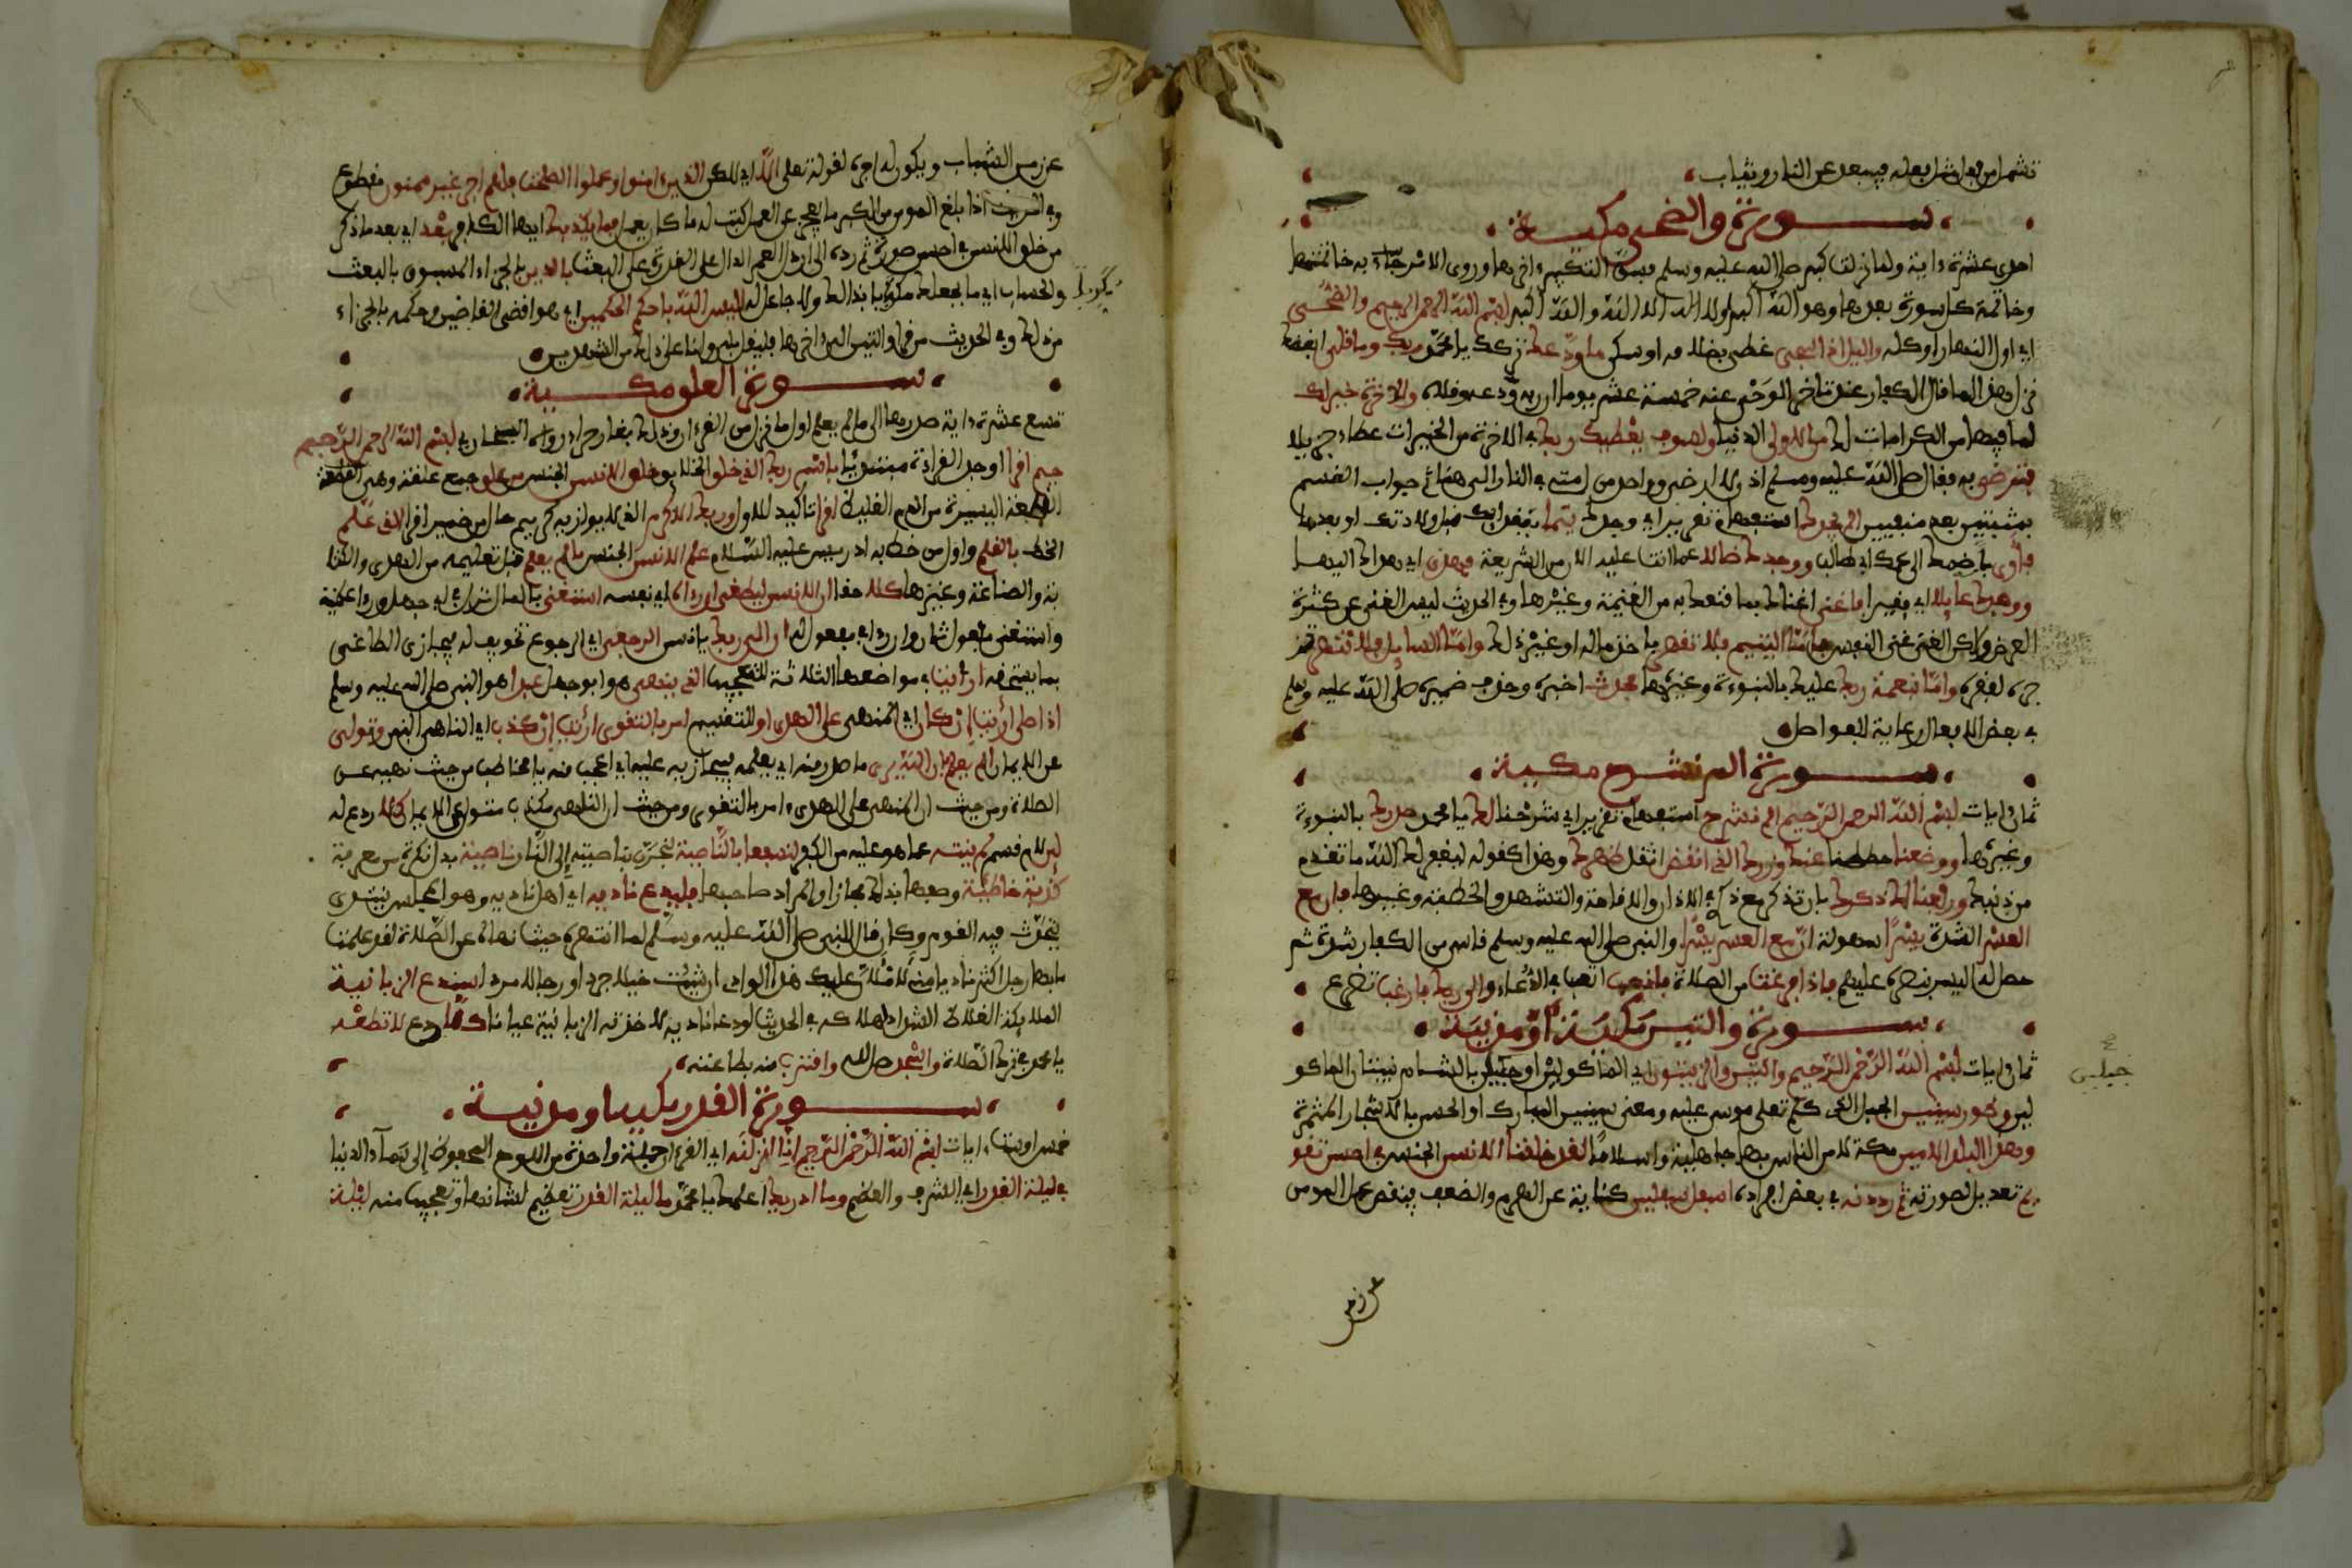 تشمل من فعل مثل فعله فيبعد عن النار ويثاب
سورة والضحى مكية
احدى عشرة ءاية ولما نزلت كبر صلى الله عليه وسلم فسن التكبير ءاخرها وروي الامر به خاتمتها
وخاتمة كل سورة بعدها وهو الله أكبر ولا اله الا الله والله أكبر بسم الله الرحمن الرحيم والضحى
اي اول النهار او كله واليل اذا سجى غطى بظلامه او سكن ما ودعك تركك يا محمد ربك وما قلى ابغضك
نزل هذا لما قال الكفار عند تاخر الوحي عنه خمسة عشر يوما ان ربه ودعه وقلاه وللاخرة خير لك
لما فيها من الكرامات لك من الاولى الدنيا ولسوف يعطيك ربك في الاخرة من الخيرات عطاء جزيلا
فترضى به فقال صلى الله عليه وسلم اذن لا ارضى وواحد من امتي في النار الى هنا تم جواب القسم
بمثبتين بعد منفيين الم يجدك استفهام تقرير اي وجدك يتيما بفقد ابيك قبل ولادتك او بعدها
فآوى بأن ضمك الى عمك ابي طالب ووجدك ضالا عما انت عليه الان من الشريعة فهدى اي هداك اليها
ووجدك عايلا اي فقيرا فاغنى اغناك بما قنعك به من الغنيمة وغيرها وفي الحديث ليس الغنى عن كثرة
العرض ولكن الغنى غنى النفس فأما اليتيم فلا تقهر باخذ ماله او غير ذلك وأما السايل فلا تنهر تز
جره لفقره وأما بنعمة ربك عليك بالنبوءة وغيرها فحدث اخبر وحذف ضميره صلى الله عليه وسلم
في بعض الافعال رعاية للفواصل
سورة الم نشرح مكية
ثمان ايات بسم الله الرحمن الرحيم الم نشرح استفهام تقرير اي شرحنا لك يا محمد صدرك بالنبوءة
وغيرها ووضعنا حططنا عنك وزرك الذي انقض اثقل ظهرك وهذا كقوله ليغفر لك الله ما تقدم
من ذنبك ورفعنا لك ذكرك بأن تذكر مع ذكري في الاذان والاقامة والتشهد والخطبة وغيرها فان مع
العسر الشدة يسرا سهولة ان مع العسر يسرا والنبي صلى الله عليه وسلم قاسى من الكفار شدة ثم
حصل له اليسر بنصره عليهم فاذا فرغت من الصلاة فانصب اتعب في الدعاء والى ربك فارغب تضرع
سورة والتين مكية او مدنية
ثمان ايات بسم الله الرحمن الرحيم والتين والزيتون اي الماكولين او جبلين بالشام ينبتان الماكو
لين وطور سينين الجبل الذي كلم تعلى موسى عليه ومعنى سينين المبارك او الحسن بالاشجار المثمرة
وهذا البلد الامين مكة لامن الناس بها جاهلية واسلاما لقد خلقنا الانسن الجنس في احسن تقو
يم تعديل لصورته ثم رددنه في بعض افراده اسفل سفلين كناية عن الهرم والضعف فينقص عمل المومن
جبلين
عن زمن
عن زمن الشباب ويكون له اجره لقوله تعلى الا اي لكن الذين ءامنوا وعملوا الصلحت فلهم اجر غير ممنون مقطوع
وفي الحديث اذا بلغ المومن من الكبر ما يعجز عن العمل كتب له ما كان يعمل فما يكذبك ايها الكافر بعد اي بعد ما ذكر
من خلق الانسن في احسن صورة ثم رده الى ارذل العمر الدال على القدرة على البعث بالدين بالجزاء المسبوق بالبعث
والحساب اي ما يجعلك مكذبا بذلك ولا جاعل له اليس الله باحكم الحكمين اي هو اقضى القاضين وحكمه بالجزاء
من ذلك وفي الحديث من قرا والتين الى ءاخرها فليقل بلى وانا على ذلك من الشهدين
سورة العلق مكية
تسع عشرة ءاية صدرها الى ما لم يعلم اول ما نزل من القرءان وذلك بغار حراء رواه البخاري بسم الله الرحمن الرحيم
اقرا اوجد القراءة مبتدئا باسم ربك الذي خلق الخلايق خلق الانسن الجنس من علق جمع علقة وهي
القطعة اليسيرة من الدم الغليظ اقرا تأكيد للاول وربك الاكرم الذي لا يوازيه كريم حال من ضمير اقرا الذي علم
الخط بالقلم واول من خط به ادريس عليه السلام علم الانسن الجنس ما لم يعلم قبل تعليمه من الهدى والكتا
بة والصناعة وغيرها كلا حقا ان الانسن ليطغى ان رءاه اي نفسه استغنى بالمال نزل في ابي جهل ورءا علمية
واستغنى مفعول ثان وان رءاه مفعول له ان الى ربك يا انسن الرجعى اي الرجوع تخويف له فيجازى الطاغي
بما يستحقه ارأيت في مواضعها الثلاثة للتعجب الذي ينهى هو ابو جهل عبدا هو النبي صلى الله عليه وسلم
اذا صلى ارأيت إن كان اي المنهي على الهدى او للتقسيم امر بالتقوى ارأيت إن كذب اي الناهي النبي وتولى
عن الايمان الم يعلم بأن الله يرى ما صدر منه اي يعلمه فيجازيه عليه اي اعجب منه يا مخاطب من حيث نهيه عن
الصلاة ومن حيث ان المنهي على الهدى ءامر بالتقوى ومن حيث ان الناهي مكذب متول عن الايمان كلا ردع له
لئن لام قسم لم ينته عما هو عليه من الكفر لنسفعا بالناصية لنجرن بناصيته إلى النار ناصية بدل نكرة من معرفة
كاذبة خاطئة وصفها بذلك مجازا والمراد صاحبها فليدع ناديه اي اهل ناديه وهو المجلس ينتدى
يتحدث فيه القوم وكان قال للنبي صلى الله عليه وسلم لما انتهره حيث نهاه عن الصلاة لقد علمت
ما بها رجل اكثر ناديا مني لأملأن عليك هذا الوادي ان شئت خيلا جردا ورجالا مردا سندع الزبانية
الملايكة الغلاظ الشداد لاهلاكه في الحديث لو دعا ناديه لاخذته الزبانية عيانا كلا ردع لا تطعه
يا محمد في ترك الصلاة واسجد صل لله واقترب منه بطاعته
سورة القدر مكية او مدنية
خمس او ست ءايات بسم الله الرحمن الرحيم انا انزلنه اي القرءان جملة واحدة من اللوح المحفوظ إلى سماء الدنيا
في ليلة القدر اي الشرف والعظم وما ادريك اعلمك يا محمد ما ليلة القدر تعظيم لشانها وتعجيب منه ليلة